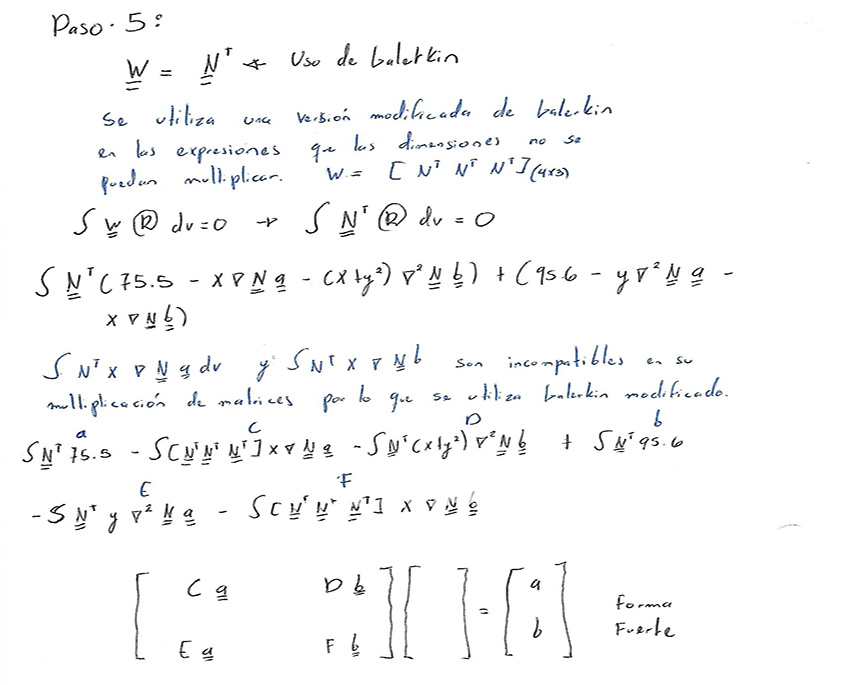 Paso. 5:
W = Nᵀ * Uso de Galerkin
Se utiliza una versión modificada de Galerkin
en las expresiones que las dimensiones no se
puedan multiplicar. W = [ Nᵀ Nᵀ Nᵀ ] (4x3)
∫ W Ⓡ dv = 0 → ∫ Nᵀ Ⓡ dv = 0
∫ Nᵀ (75.5 - x ∇ N a - (x+y²) ∇² N b) + (95.6 - y ∇² N a -
x ∇ N b)
∫ Nᵀ x ∇ N a dv y ∫ Nᵀ x ∇ N b son incompatibles en su
multiplicación de matrices por lo que se utiliza Galerkin modificado.
a C D b
∫ Nᵀ 75.5 - ∫ [Nᵀ Nᵀ Nᵀ] x ∇ N a - ∫ Nᵀ (x+y²) ∇² N b + ∫ Nᵀ 95.6
E F
- ∫ Nᵀ y ∇² N a - ∫ [Nᵀ Nᵀ Nᵀ] x ∇ N b
[ C a D b ] [ ] = [ a ] Forma
[ E a F b ] [ ] [ b ] Fuerte